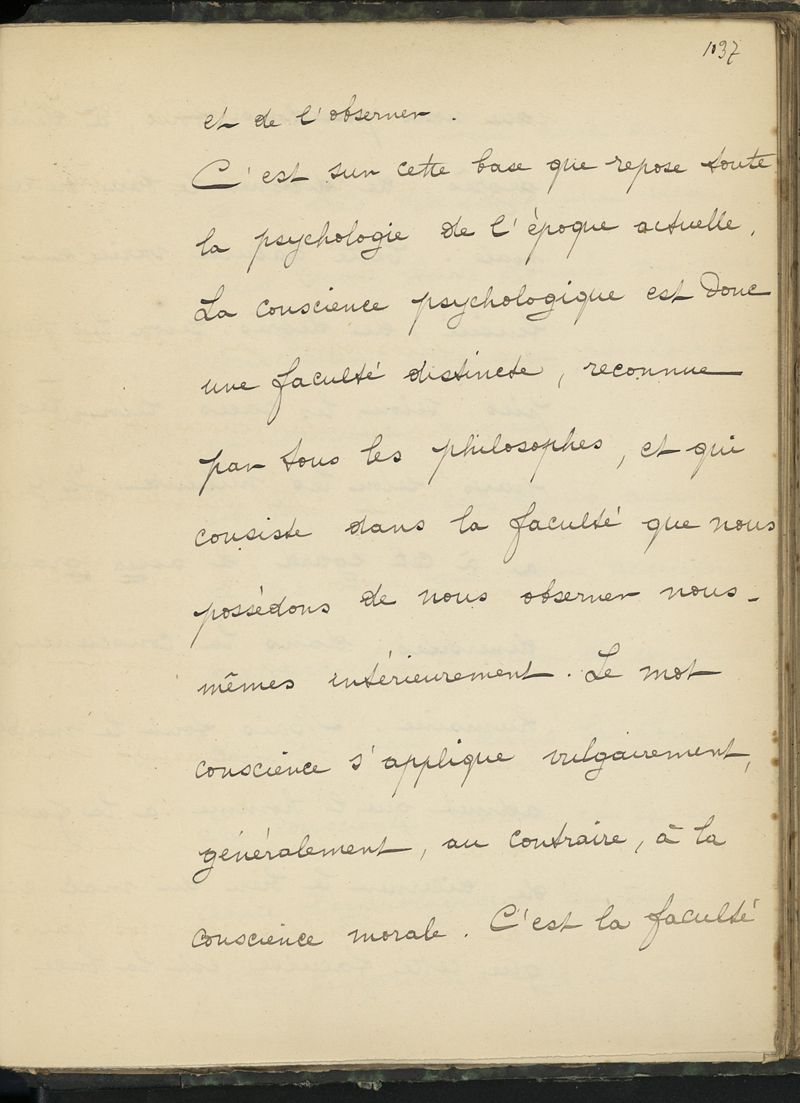 1037
et de l'observer.
C'est sur cette base que repose toute
la psychologie de l'époque actuelle.
La conscience psychologique est donc
une faculté distincte, reconnue
par tous les philosophes, et qui
consiste dans la faculté que nous
possédons de nous observer nous-
mêmes intérieurement. Le mot
conscience s'applique vulgairement,
généralement, au contraire, à la
conscience morale. C'est la faculté